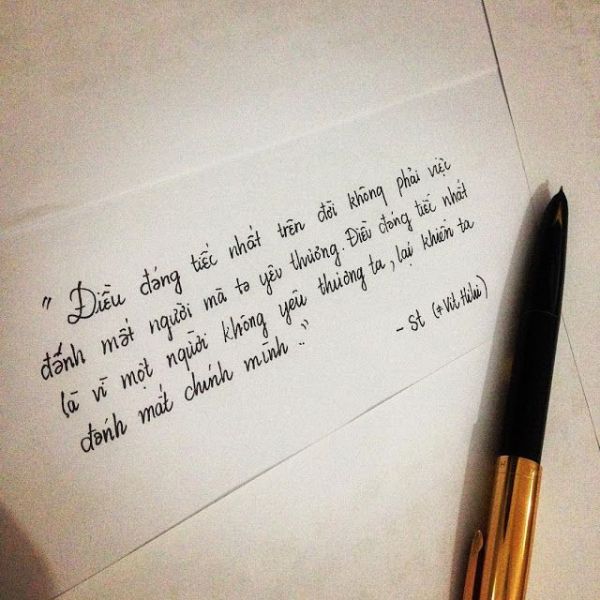 " Điều đáng tiếc nhất trên đời không phải việc
đánh mất người mà ta yêu thương. Điều đáng tiếc nhất
là vì một người không yêu thương ta, lại khiến ta
đánh mất chính mình."
- St (#Vit Hihi)